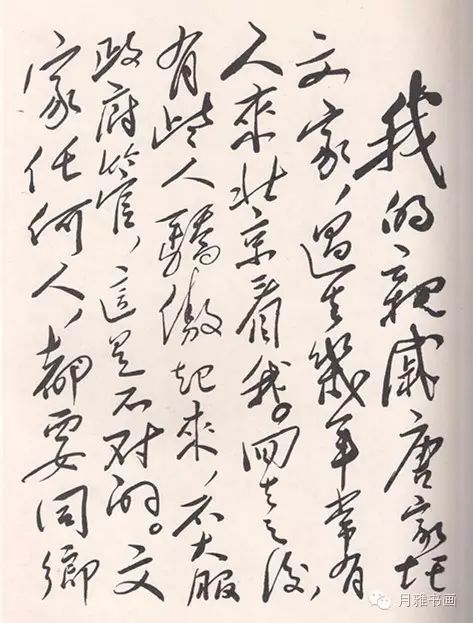 我的親戚唐家圫
文家，過去幾年常有
人來北京看我。回去之後，
有些人驕傲起來，不大服
政府管，這是不对的。文
家任何人，都要同鄉
月雅书画